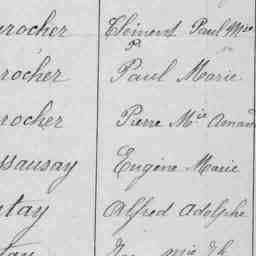 rocher Clément Paul Mie
P.
rocher Paul Marie
rocher Pierre Mie Amand
ssausay Eugène Marie
tay Alfred Adolphe